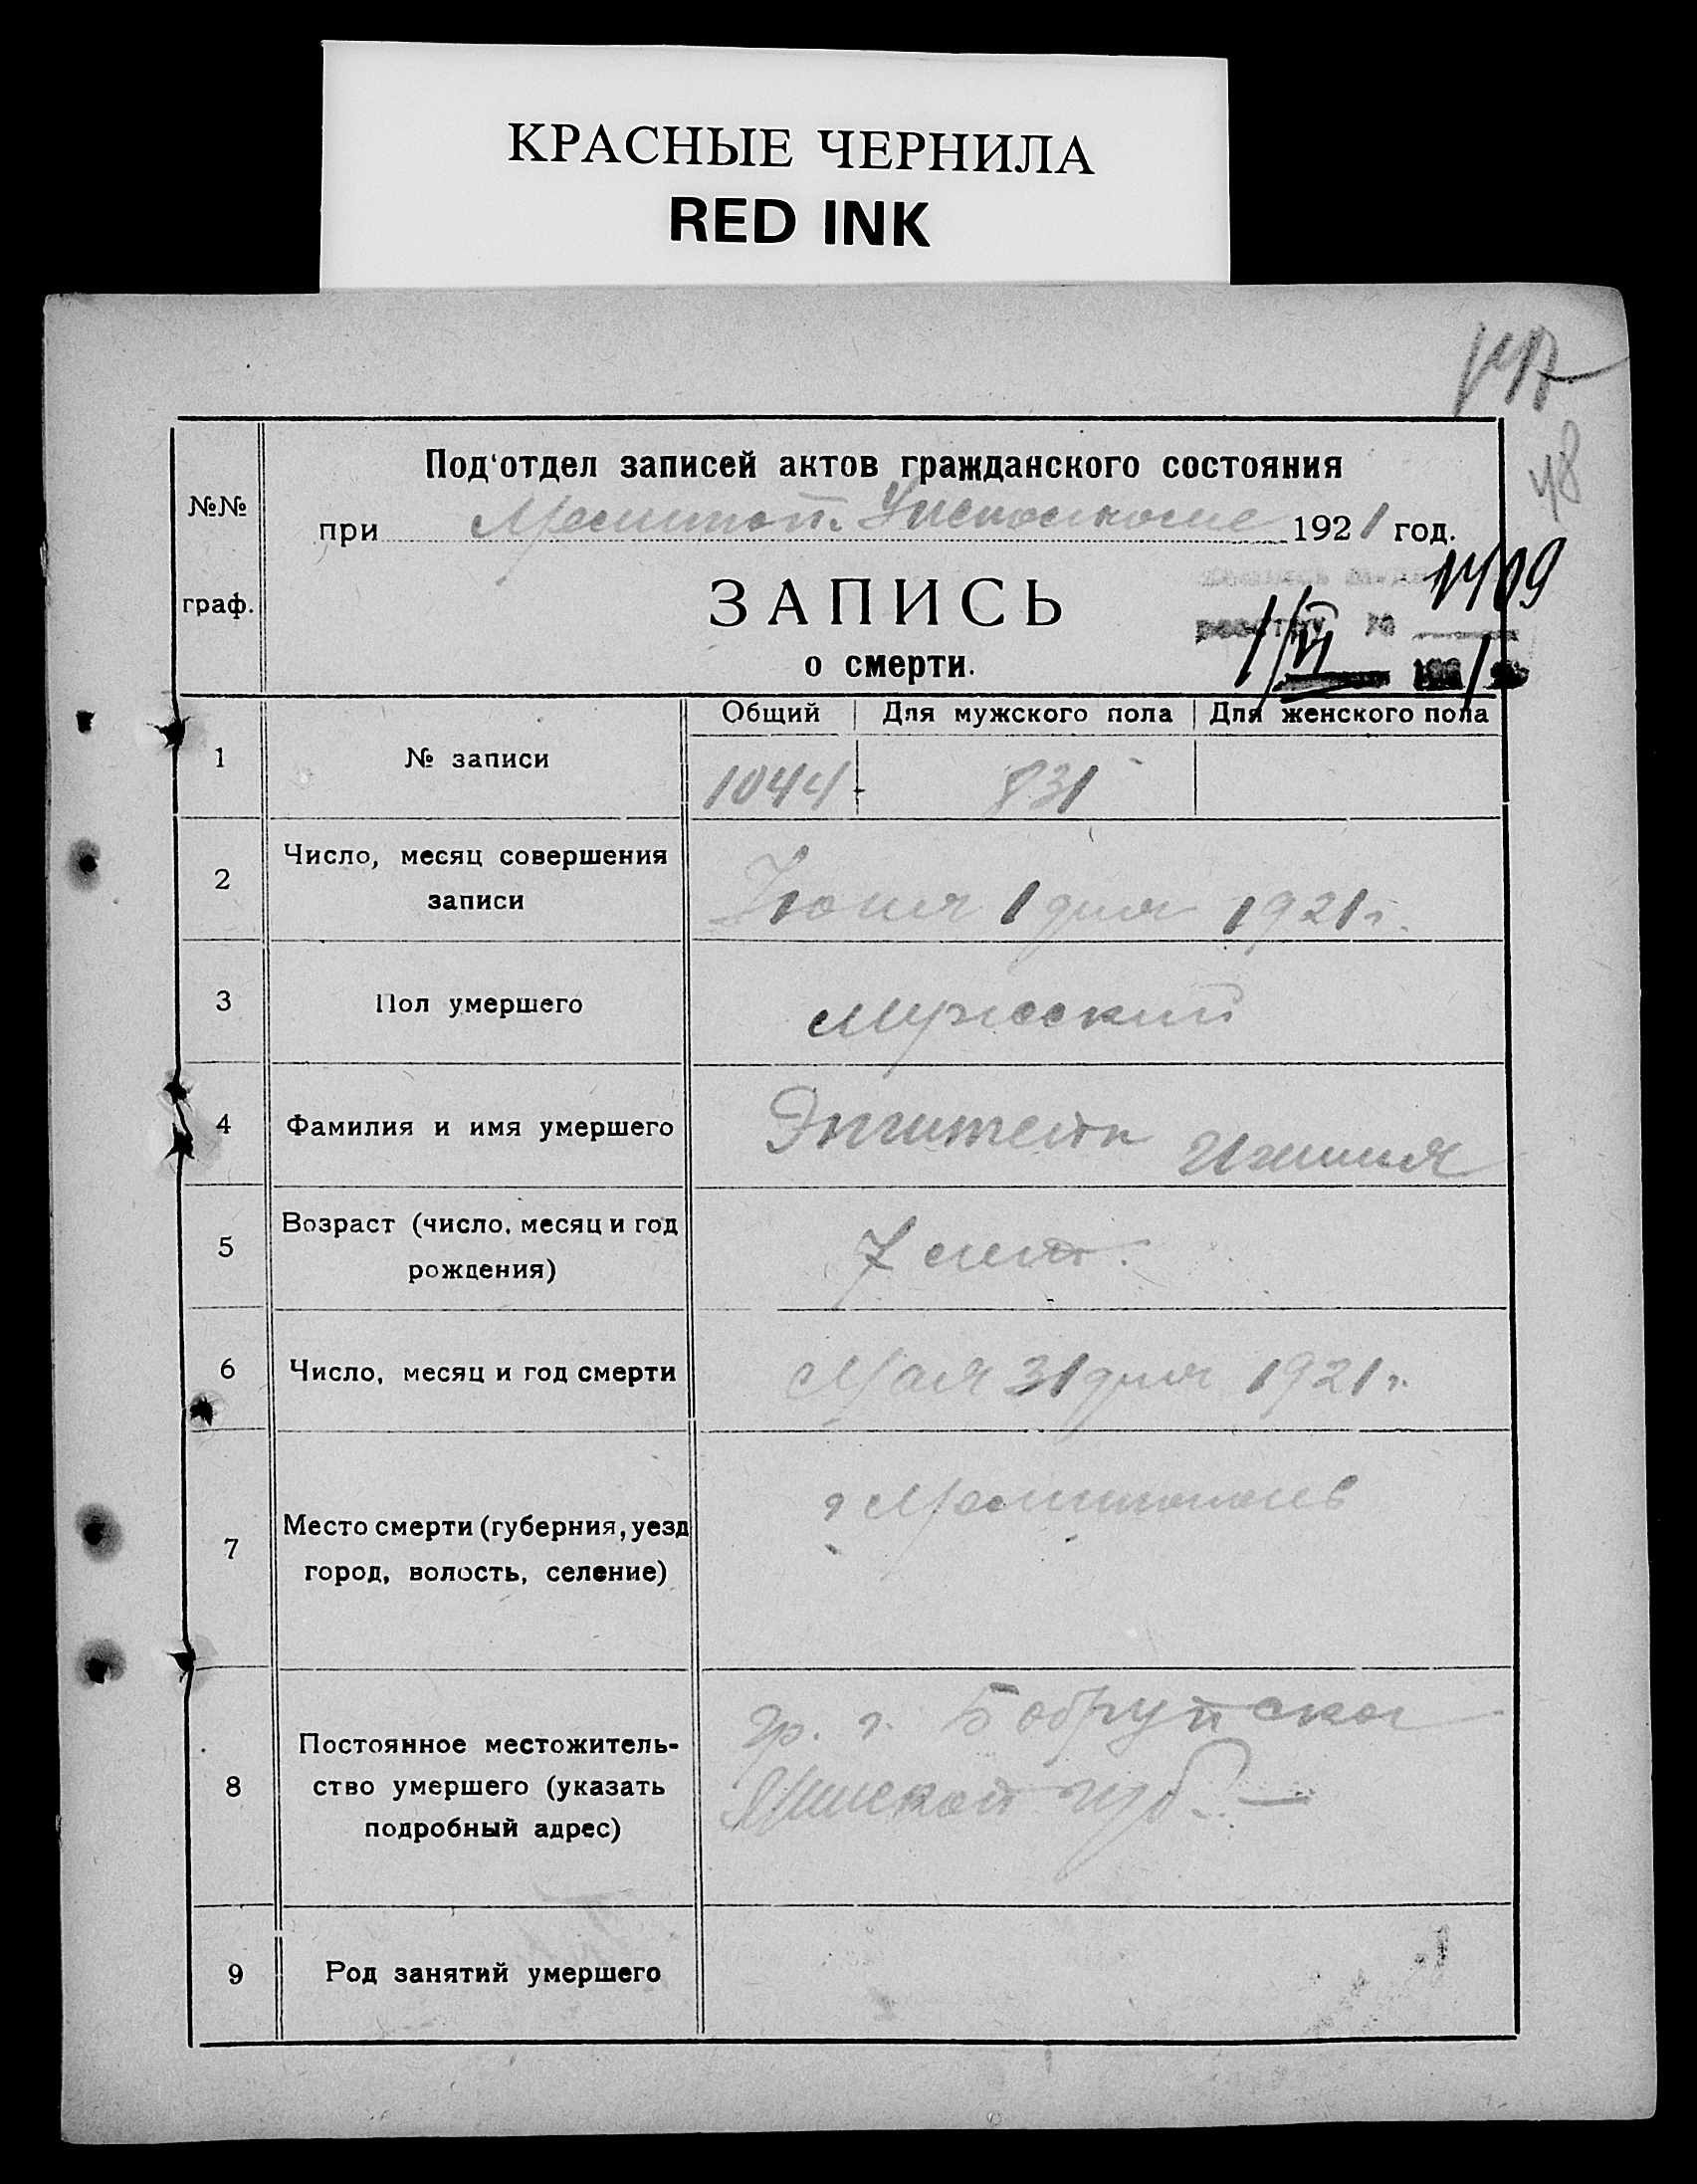 КРАСНЫЕ ЧЕРНИЛА
RED INK
48
Под'отдел записей актов гражданского состояния
№№
при Мелитоп. Уисполкоме 1921 год.
1409
граф.
ЗАПИСЬ
реестру №
1/VI 1921
о смерти.
Общий Для мужского пола Для женского пола
1 № записи
1044 831
Число, месяц совершения
2
записи
Июня 1 дня 1921 г.
3 Пол умершего
мужской
4 Фамилия и имя умершего
Эпштейн
Возраст (число, месяц и год
5
рождения)
7 лет.
6 Число, месяц и год смерти
Мая 31 дня 1921 г.
г Мелитополь
Место смерти (губерния, уезд
7
город, волость, селение)
гр. г. Бобруйска
Постоянное местожитель-
8 ство умершего (указать
Минской губ. —
подробный адрес)
9 Род занятий умершего